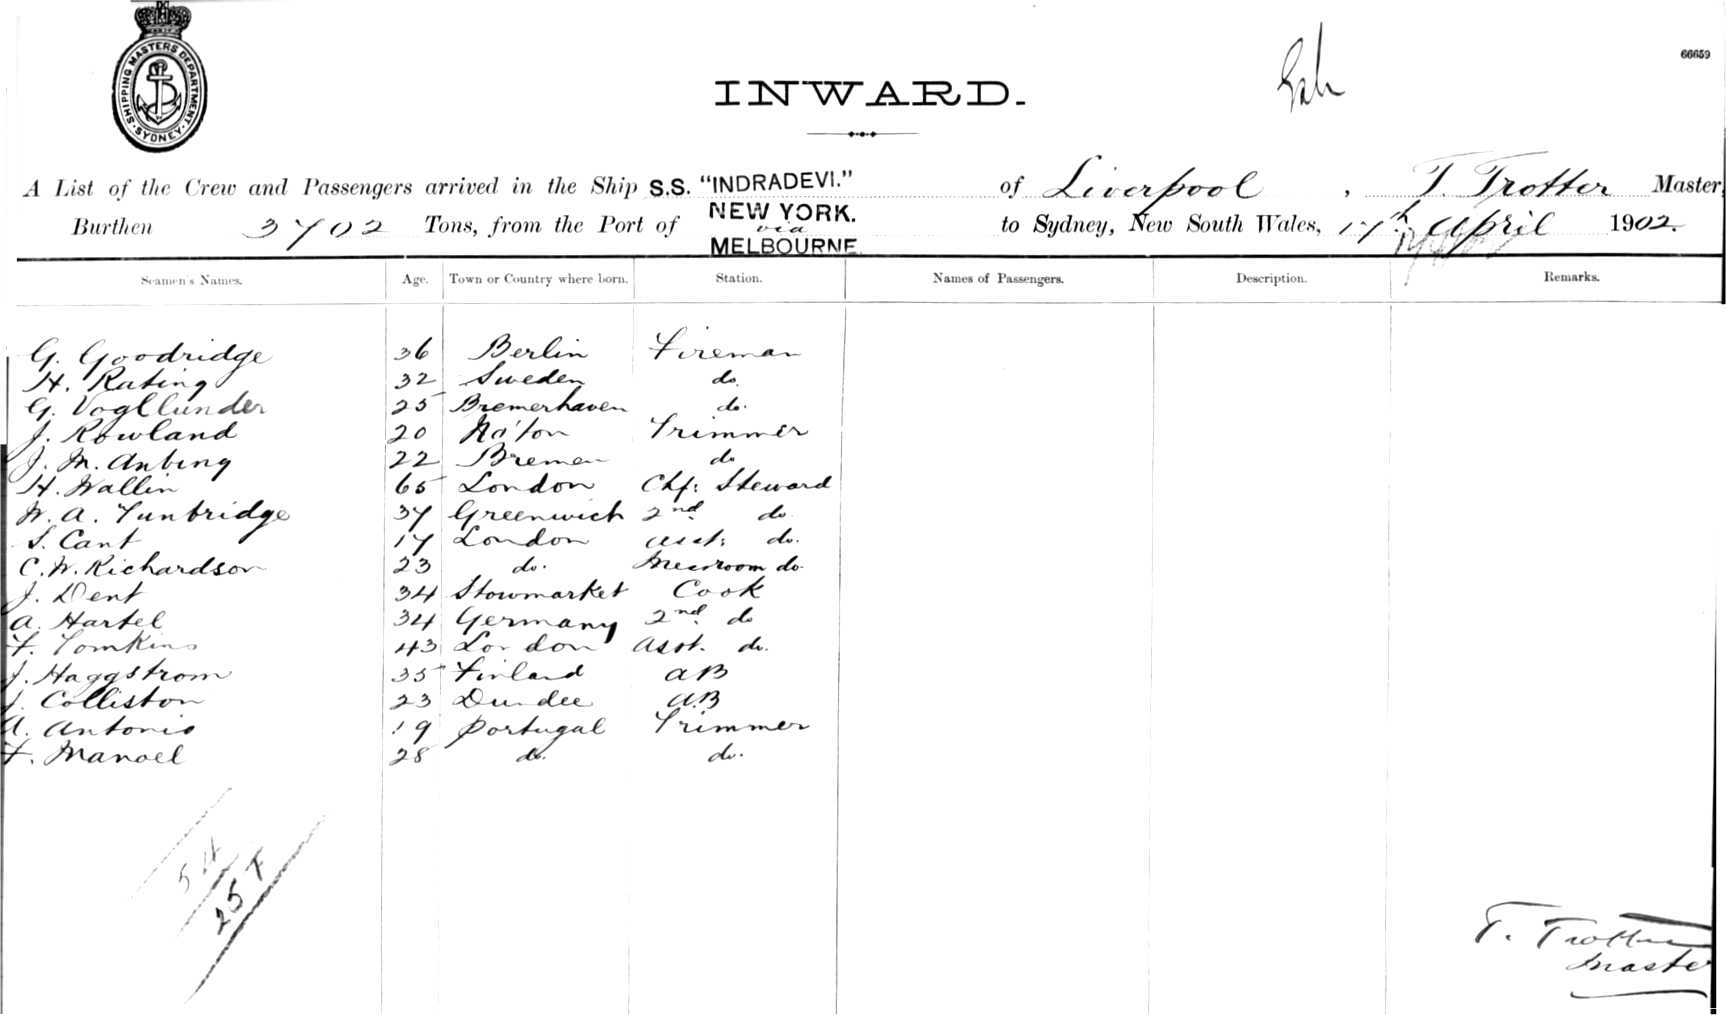 SHIPPING MASTERS DEPARTMENT
SYDNEY
66659
INWARD.
A List of the Crew and Passengers arrived in the Ship S.S. "INDRADEVI." of Liverpool, T. Trotter Master,
Burthen 3702 Tons, from the Port of NEW YORK. via MELBOURNE. to Sydney, New South Wales, 17th April 1902.
Seamen's Names. Age. Town or Country where born. Station. Names of Passengers. Description. Remarks.
G. Goodridge 36 Berlin Fireman
H. Rating 32 Sweden do.
G. Vogllunder 25 Bremerhaven do.
J. Rowland 20 Trimmer
J. M. Anbing 22 Bremen do
H. Wallin 65 London Chf: Steward
W. A. Tunbridge 37 Greenwich 2nd do.
S. Cant 17 London asst: do.
C. W. Richardson 23 do. Messroom do.
J. Dent 34 Stowmarket Cook
A. Hartel 34 Germany 2nd do
F. Tomkins 43 London Asst. do.
J. Haggstrom 35 Finland AB
J. Colliston 23 Dundee A.B
A. Antonio 19 Portugal Trimmer
F. Manoel 28 do. do.
54
257
T. Trotter
Master